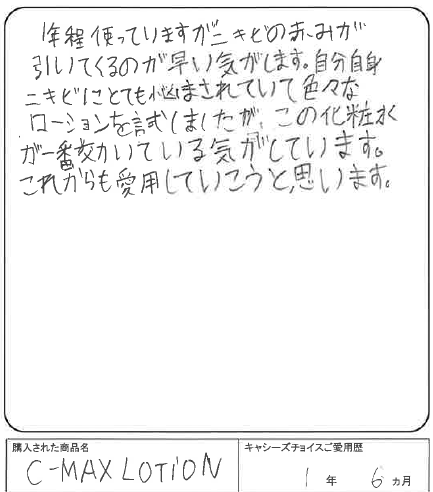 1年程使っていますがニキビの赤みが
引いてくるのが早い気がします。自分自身
ニキビにとても悩まされていて色々な
ローションを試しましたが、この化粧水
が一番効いている気がしています。
これからも愛用していこうと思います。
購入された商品名
キャシーズチョイスご愛用歴
C-MAX LOTION
1 年 6 ヵ月